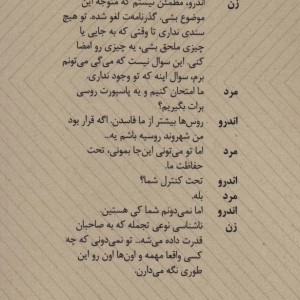 زن اندرو، مطمئن نیستم که متوجه این
موضوع بشی. گذرنامه‌ت لغو شده. تو هیچ
سندی نداری تا وقتی که به جایی یا
چیزی ملحق بشی، یه چیزی رو امضا
کنی. این سوال نیست که می‌گی می‌تونم
برم، سوال اینه که تو وجود نداری.
مرد ما امتحان کنیم و یه پاسپورت روسی
برات بگیریم؟
اندرو روس‌ها بیشتر از ما فاسدن. اگه قرار بود
من شهروند روسیه باشم یه..
مرد اما تو می‌تونی این‌جا بمونی، تحت
حفاظت ما.
اندرو تحت کنترل شما؟
مرد بله.
اندرو اما نمی‌دونم شما کی هستین.
زن ناشناسی نوعی تجمله که به صاحبان
قدرت داده می‌شه.. تو نمی‌دونی که چه
کسی واقعا مهمه و اون‌ها اون رو این
طوری نگه می‌دارن.